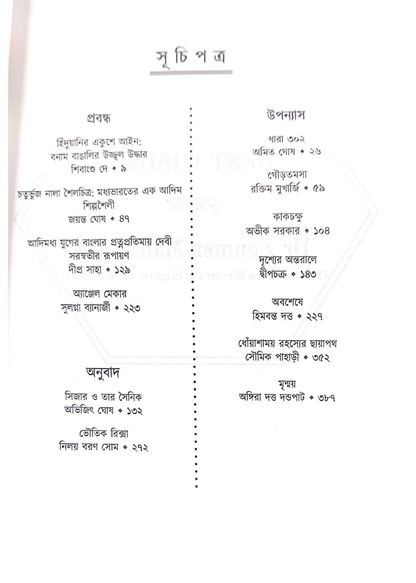 সূচিপত্র
প্রবন্ধ
হিঁদুয়ানির একুশে আইন:
বনাম বাঙালির উজ্জ্বল উদ্ধার
শিবাংশু দে • ৯
চতুর্ভুজ নালা শৈলচিত্র: মধ্যভারতের এক আদিম
শিল্পশৈলী
জয়ন্ত ঘোষ • ৪৭
আদিমধ্য যুগের বাংলার প্রত্নপ্রতিমায় দেবী
সরস্বতীর রূপায়ণ
দীপ্র সাহা • ১২৯
অ্যাঞ্জেল মেকার
সুলগ্না ব্যানার্জী • ২২৩
অনুবাদ
সিজার ও তার সৈনিক
অভিজিৎ ঘোষ • ১৩২
ভৌতিক রিক্সা
নিলয় বরণ সোম • ২৭২
উপন্যাস
ধারা ৩০২
অমিত ঘোষ • ২৬
গৌড়তমসা
রক্তিম মুখার্জি • ৫৯
কাকচক্ষু
অভীক সরকার • ১০৪
দৃশ্যের অন্তরালে
দ্বীপচক্র • ১৪৩
অবশেষে
হিমবন্ত দত্ত • ২২৭
ধোঁয়াশাময় রহস্যের ছায়াপথ
সৌমিক পাহাড়ী • ৩৫২
মৃন্ময়
অঙ্গিরা দত্ত দন্ডপাট • ৩৮৭